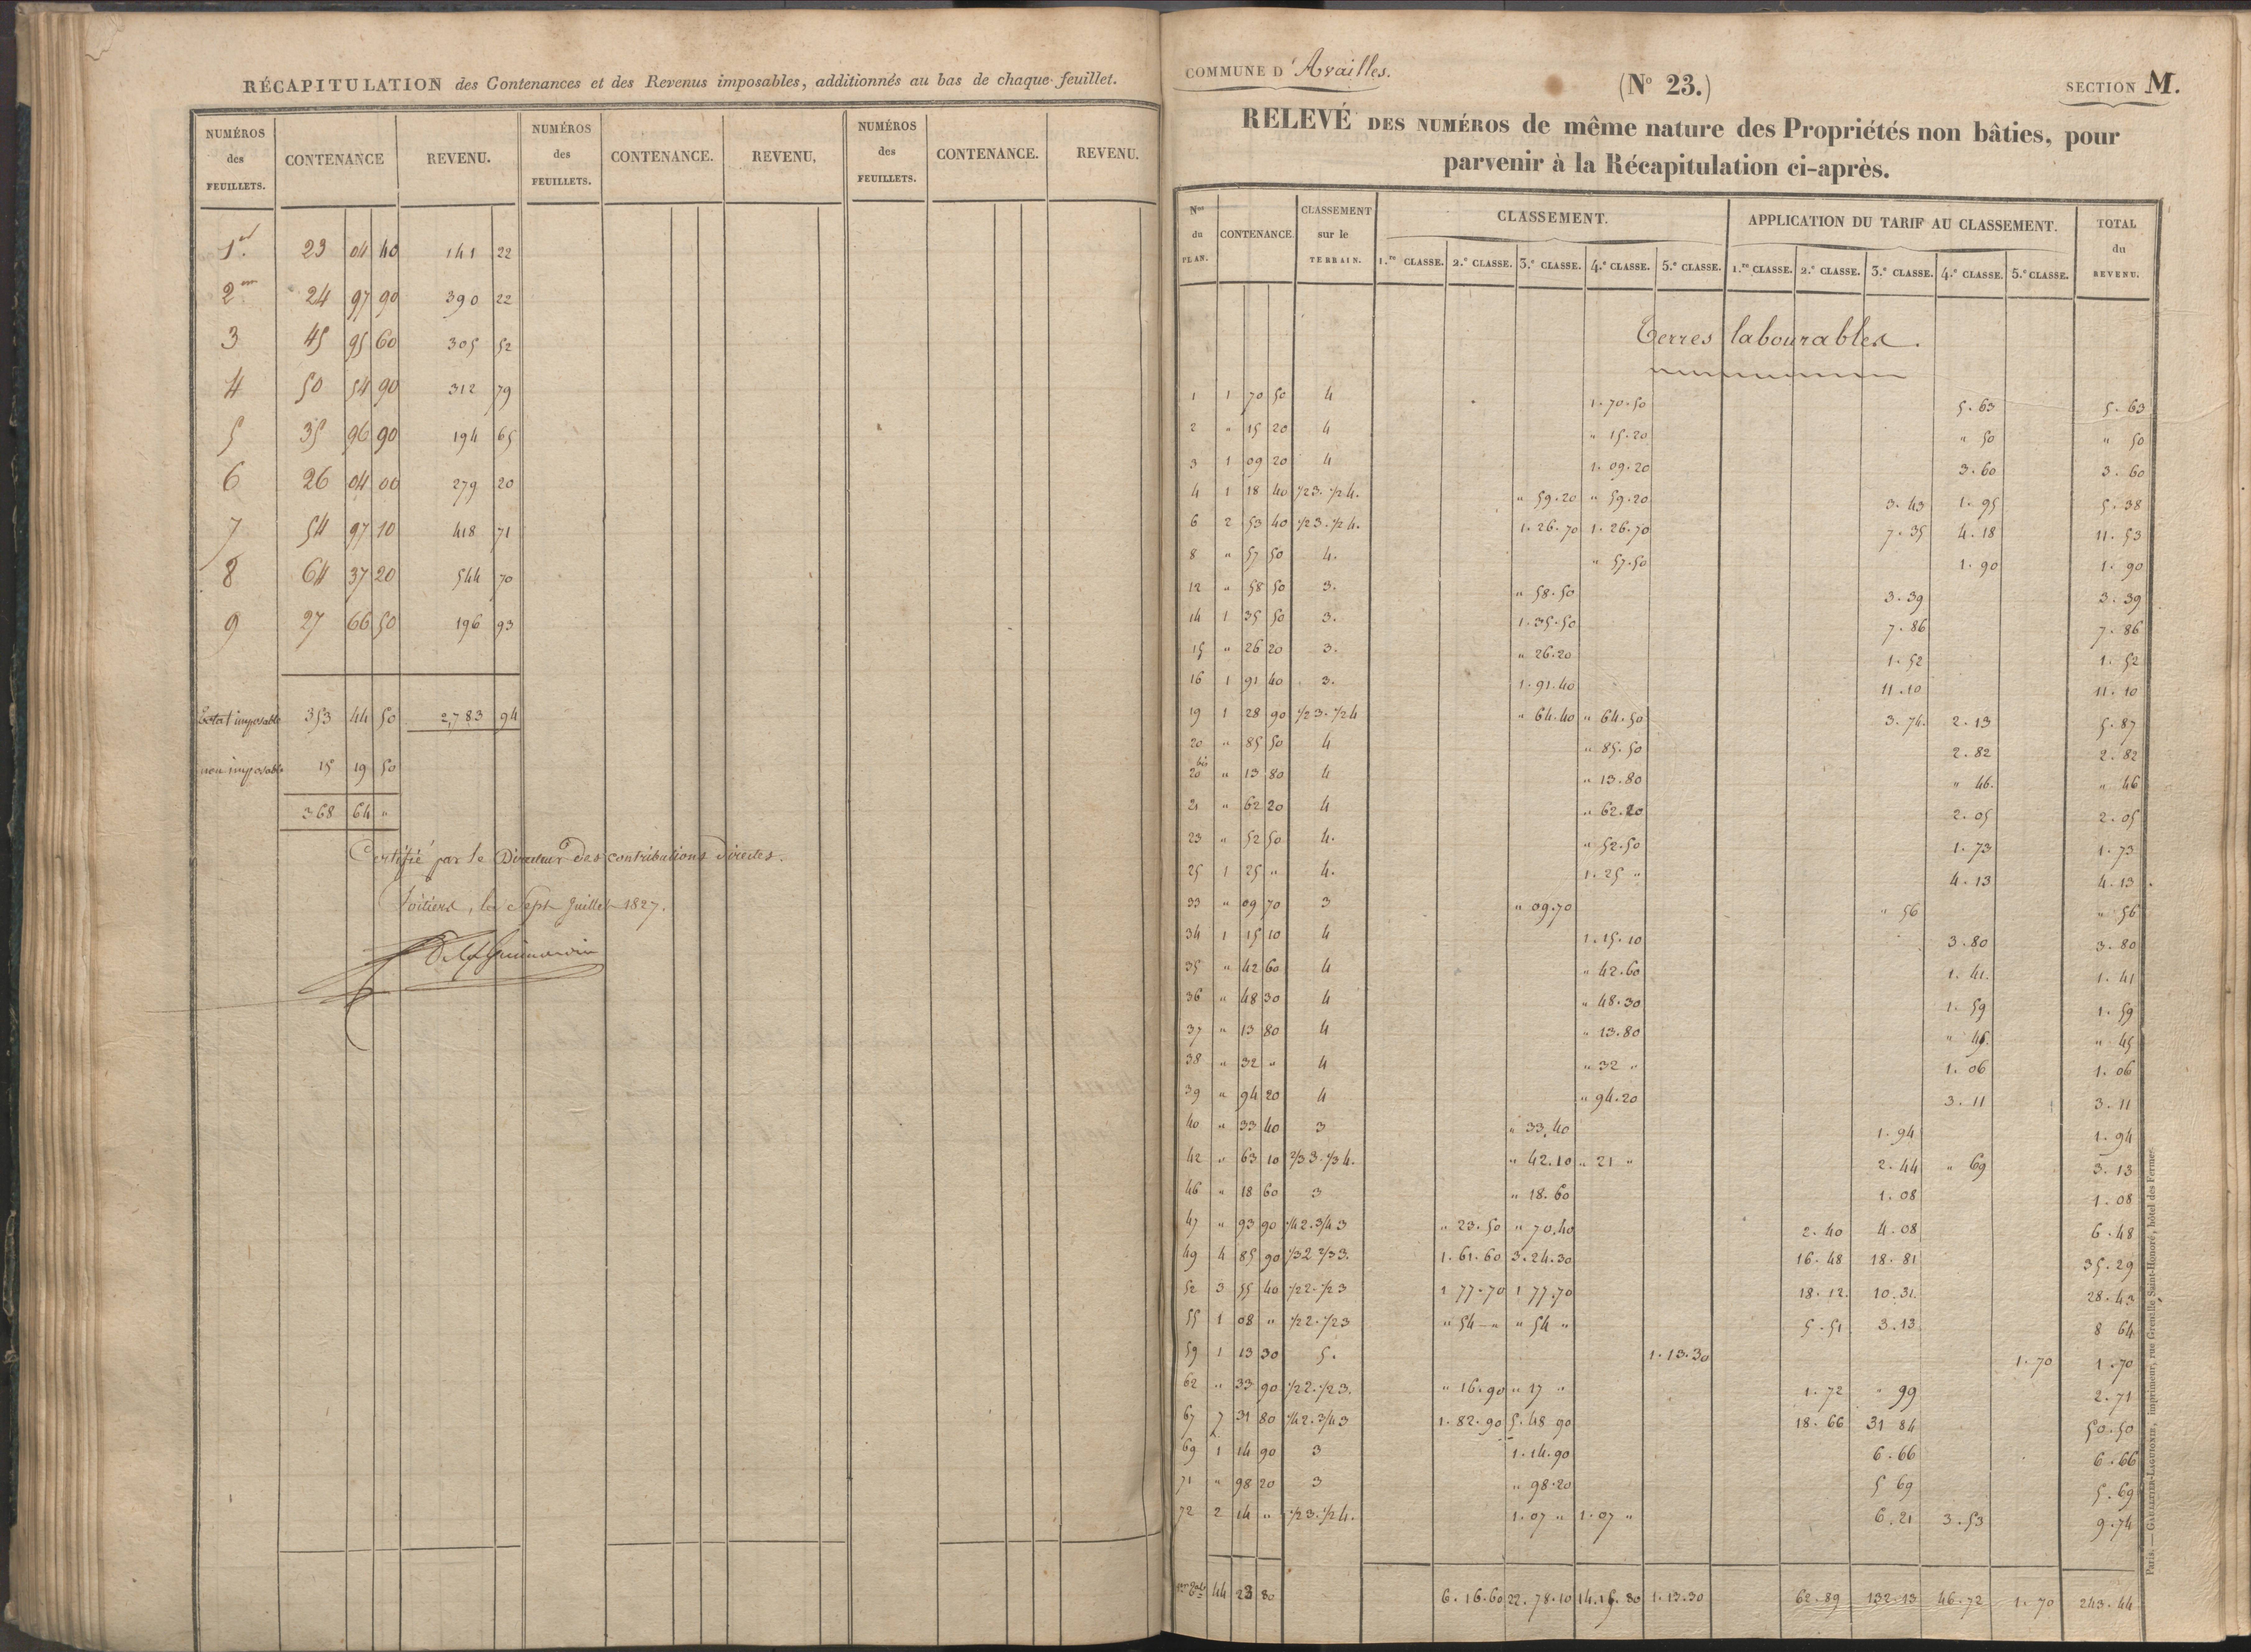 RÉCAPITULATION des Contenances et des Revenus imposables, additionnés au bas de chaque feuillet.
NUMÉROS des FEUILLETS. CONTENANCE REVENU. NUMÉROS des FEUILLETS. CONTENANCE. REVENU, NUMÉROS des FEUILLETS. CONTENANCE. REVENU.
1er 23 04 40 141 22
2me 24 97 90 390 22
3 45 95 60 305 52
4 50 54 90 312 79
5 35 96 90 194 65
6 26 04 00 279 20
7 54 97 10 418 71
8 64 37 20 544 70
9 27 66 50 196 93
Total imposable 353 44 50 2,783 94
non imposable 15 19 50
368 64 "
Certifié par le Directeur des contributions directes.
Poitiers, le Sept Juillet 1827.
COMMUNE D'Availles.
(No 23.)
SECTION M.
RELEVÉ DES NUMÉROS de même nature des Propriétés non bâties, pour
parvenir à la Récapitulation ci-après.
Nos du PLAN. CONTENANCE. CLASSEMENT sur le TERRAIN. CLASSEMENT. APPLICATION DU TARIF AU CLASSEMENT. TOTAL du REVENU.
1.re CLASSE. 2.e CLASSE. 3.e CLASSE. 4.e CLASSE. 5.e CLASSE. 1.re CLASSE. 2.e CLASSE. 3.e CLASSE. 4.e CLASSE. 5.e CLASSE.
Terres labourables.
1 1 70 50 4 1.70.50 5.63 5.63
2 " 15 20 4 " 15.20 " 50 " 50
3 1 09 20 4 1.09.20 3.60 3.60
4 1 18 40 1/2 3. 1/2 4. " 59.20 " 59.20 3.43 1.95 5.38
6 2 53 40 1/2 3. 1/2 4. 1.26.70 1.26.70 7.35 4.18 11.53
8 " 57 50 4. " 57.50 1.90 1.90
12 " 58 50 3. " 58.50 3.39 3.39
14 1 35 50 3. 1.35.50 7.86 7.86
15 " 26 20 3. " 26.20 1.52 1.52
16 1 91 40 3. 1.91.40 11.10 11.10
19 1 28 90 1/2 3. 1/2 4 " 64.40 " 64.50 3.74. 2.13 5.87
20 " 85 50 4 " 85.50 2.82 2.82
20 bis " 13 80 4 " 13.80 " 46. " 46
21 " 62 20 4 " 62.20 2.05 2.05
23 " 52 50 4. " 52.50 1.73 1.73
25 1 25 " 4. 1.25 " 4.13 4.13
33 " 09 70 3 " 09.70 " 56 " 56
34 1 15 10 4 1.15.10 3.80 3.80
35 " 42 60 4 " 42.60 1.41. 1.41
36 " 48 30 4 " 48.30 1.59 1.59
37 " 13 80 4 " 13.80 " 45. " 45
38 " 32 " 4 " 32 " 1.06 1.06
39 " 94 20 4 " 94.20 3.11 3.11
40 " 33 40 3 " 33.40 1.94 1.94
42 " 63 10 2/3 3. 1/3 4. " 42.10 " 21 " 2.44 " 69 3.13
46 " 18 60 3 " 18.60 1.08 1.08
47 " 93 90 1/4 2. 3/4 3 " 23.50 " 70.40 2.40 4.08 6.48
49 4 85 90 1/3 2 2/3 3. 1.61.60 3.24.30 16.48 18.81 35.29
52 3 55 40 1/2 2. 1/2 3 1 77.70 1 77.70 18.12. 10.31. 28.43
55 1 08 " 1/2 2. 1/2 3 " 54 " " 54 " 5.51 3.13 8 64
59 1 13 30 5. 1.13.30 1.70 1.70
62 " 33 90 1/2 2. 1/2 3. " 16.90 " 17 " 1.72 " 99 2.71
67 7 31 80 1/4 2. 3/4 3 1.82.90 5.48 90 18.66 31 84 50.50
69 1 14 90 3 1.14.90 6.66 6.66
71 " 98 20 3 " 98.20 5 69 5.69
72 2 14 " 1/2 3. 1/2 4. 1.07 " 1.07 " 6.21 3.53 9.74
44 23 80 6.16.60 22.78.10 14.15.80 1.13.30 62.89 132.13 46.72 1.70 243.44
Paris. — GAULTIER-LAGUIONIE, imprimeur, rue Grenelle Saint-Honoré, hôtel des Fermes.